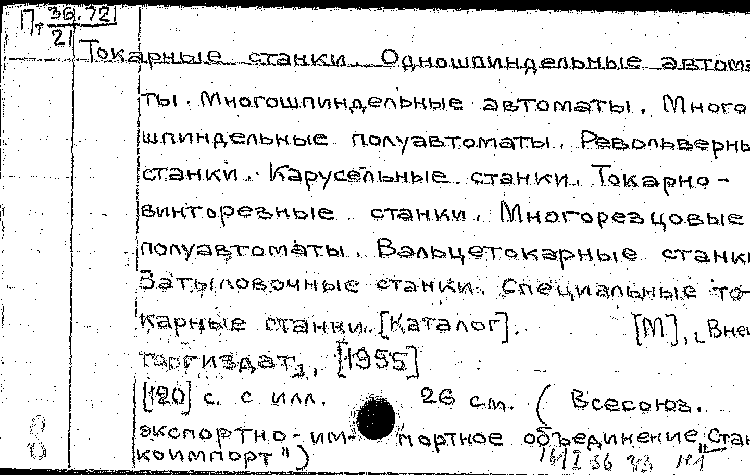 Пт 36.72
21
Токарные станки. Одношпиндельные автома
ты. Многошпиндельные автоматы. Много
шпиндельные полуавтоматы. Револьверны
станки. Карусельные станки. Токарно-
винторезные станки. Многорезцовые
полуавтоматы. Вальцетокарные станки
Затыловочные станки. Специальные то-
карные станки. [Каталог]. [М], Внеш
торгиздат, [1955]
[120] с. с илл. 26 см. (Всесоюз.
экспортно-им- портное объединение "Стан
коимпорт")
8